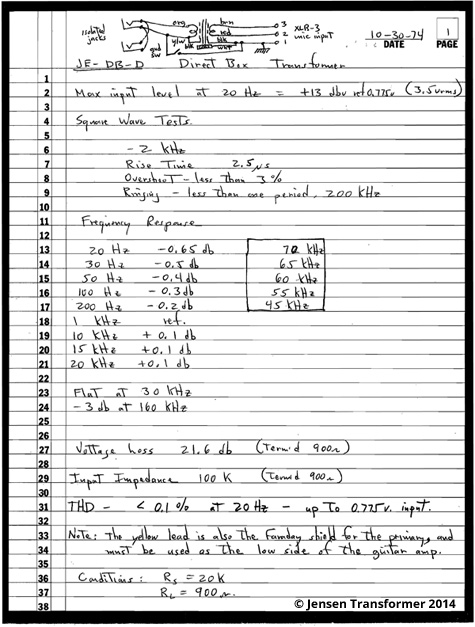 isolated jacks
org
brn
3 XLR-3
yel
red
2 mic input
blk
wht
1
gnd sw
10-30-74
DATE
1
PAGE
JE-DB-D Direct Box Transformer
1
2 Max input level at 20 Hz = +13 dbv ref 0.775v (3.5vrms)
3
4 Square Wave Tests.
5
6 -2 kHz
7 Rise Time 2.5μs
8 Overshoot - less than 3%
9 Ringing - less than one period, 200 kHz
10
11 Frequency Response
12
13 20 Hz -0.65 db 70 kHz
14 30 Hz -0.5 db 65 kHz
15 50 Hz -0.4 db 60 kHz
16 100 Hz -0.3 db 55 kHz
17 200 Hz -0.2 db 45 kHz
18 1 kHz ref.
19 10 kHz +0.1 db
20 15 kHz +0.1 db
21 20 kHz +0.1 db
22
23 Flat at 30 kHz
24 -3 db at 160 kHz
25
26
27 Voltage Loss 21.6 db (Term'd 900Ω)
28
29 Input Impedance 100 K (Term'd 900Ω)
30
31 THD - < 0.1% at 20 Hz - up to 0.775v. input.
32
33 Note: The yellow lead is also the Faraday shield for the primary, and
34 must be used as the low side of the guitar amp.
35
36 Conditions: Rs = 20K
37 RL = 900Ω.
38
© Jensen Transformer 2014